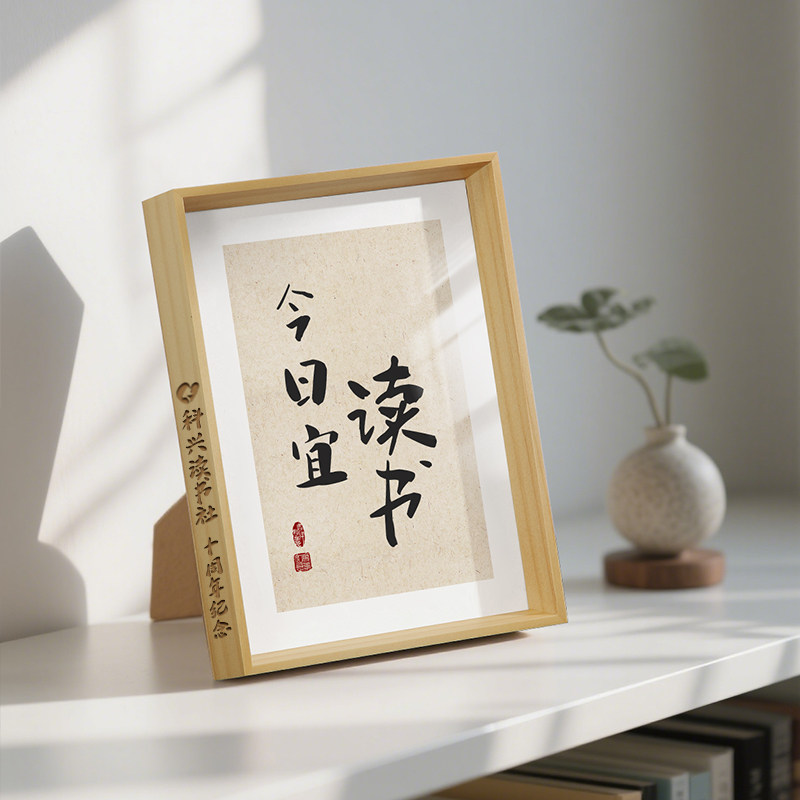 今日宜
读书
科兴读书社 十周年纪念